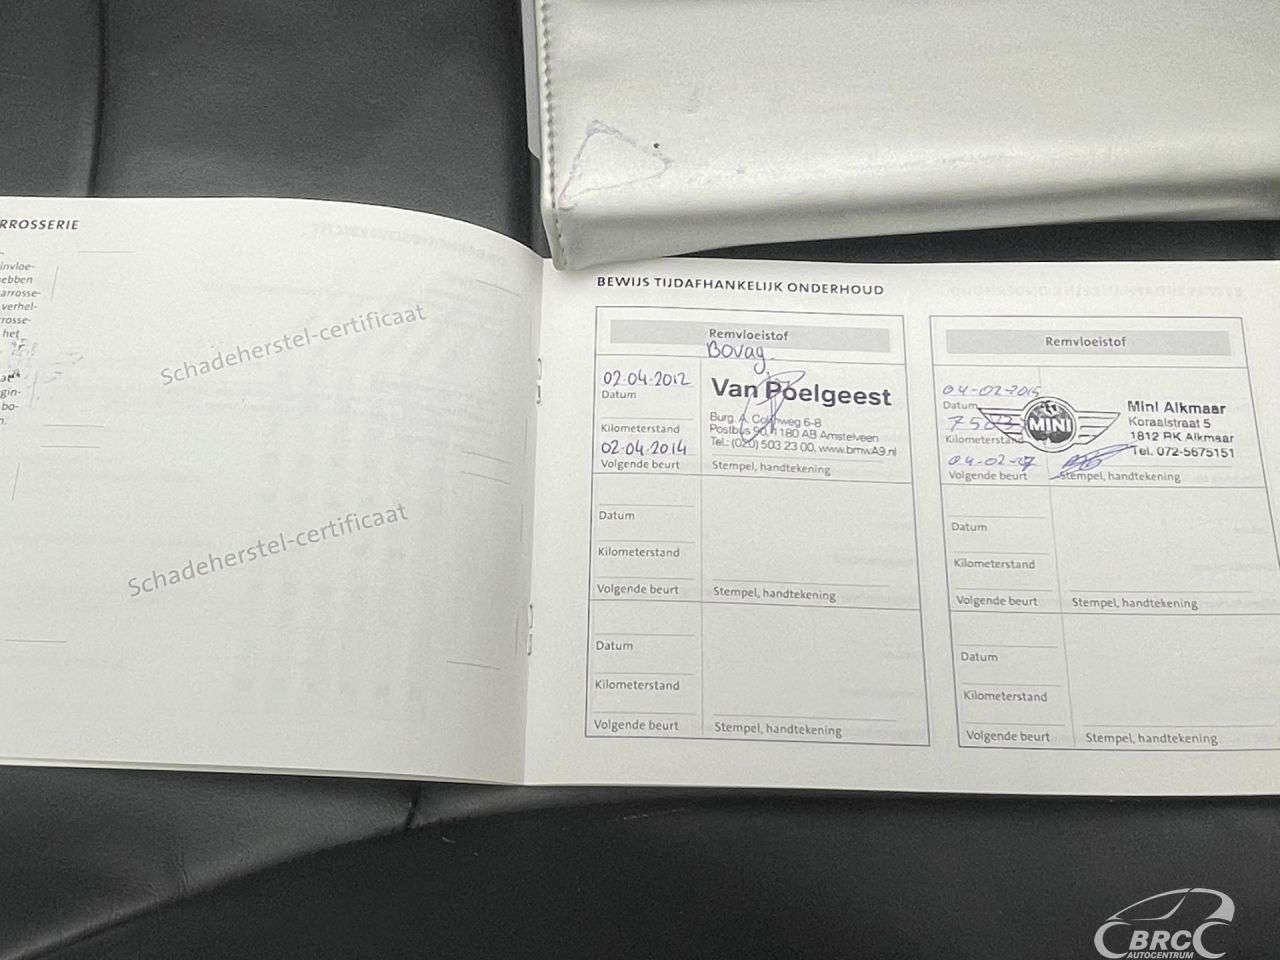 RROSSERIE
invloe-
ebben
arrosse-
verhel-
rosse-
het
gin-
bo-
n.
Schadeherstel-certificaat
Schadeherstel-certificaat
BEWIJS TIJDAFHANKELIJK ONDERHOUD
Remvloeistof
Bovag.
02-04-2012
Datum
Kilometerstand
02-04-2014
Volgende beurt
Van Poelgeest
Burg. A. 6-8
Postbus 90, 1180 AB Amstelveen
Tel.: (020) 503 23 00, www.bmwA9.nl
Stempel, handtekening
Datum
Kilometerstand
Volgende beurt
Stempel, handtekening
Datum
Kilometerstand
Volgende beurt
Stempel, handtekening
Remvloeistof
04-02-2015
Datum
Kilometerstand
Volgende beurt
MINI
Mini Alkmaar
Koraalstraat 5
1812 RK Alkmaar
Tel. 072-5675151
Stempel, handtekening
Datum
Kilometerstand
Volgende beurt
Stempel, handtekening
Datum
Kilometerstand
Volgende beurt
Stempel, handtekening
BRC
AUTOCENTRUM